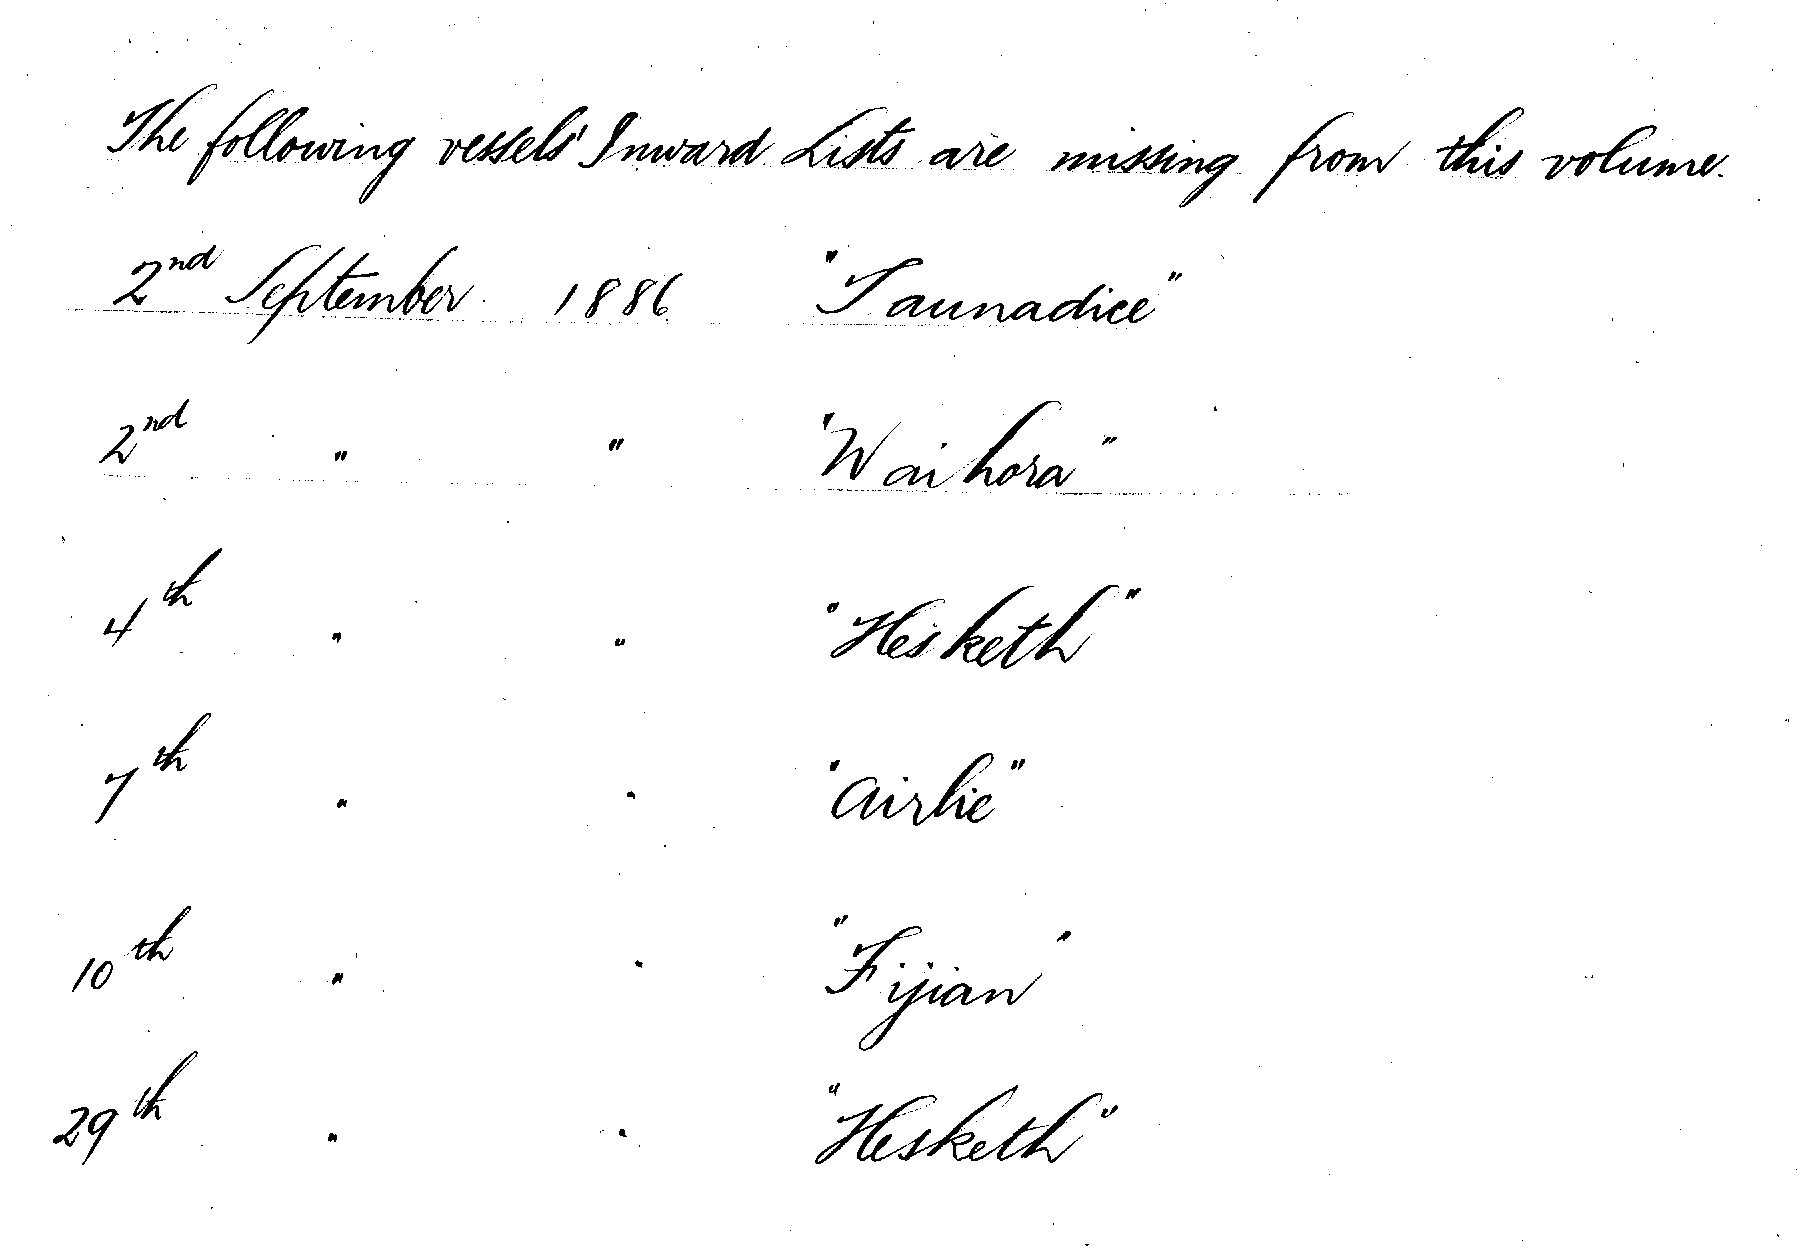 The following vessels' Inward Lists are missing from this volume.
2nd September 1886 "Taunadice"
2nd " " "Waihora"
4th " " "Hesketh"
7th " " "Airlie"
10th " " "Fijian"
29th " " "Hesketh"